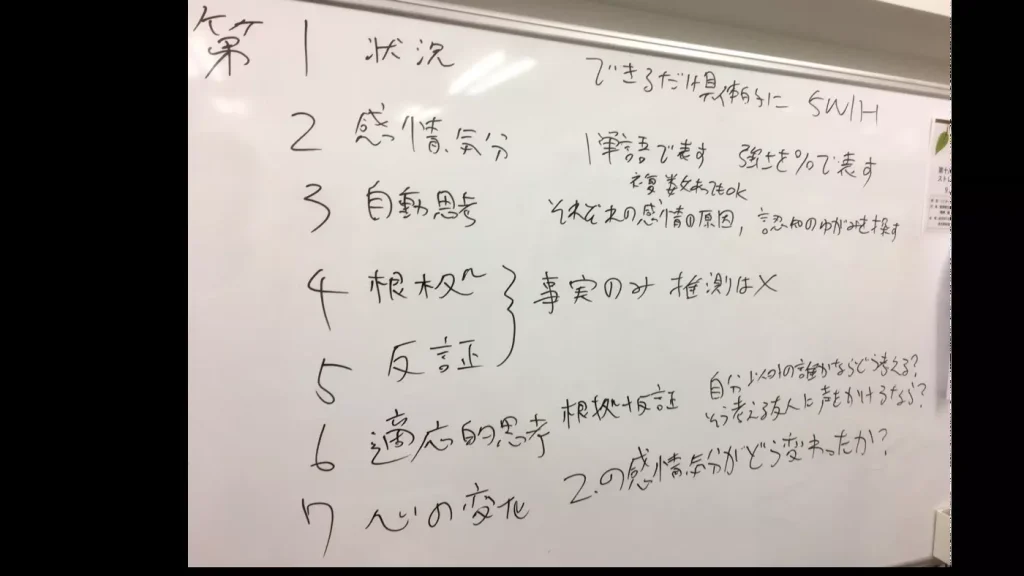 第 1 状況 できるだけ具体的に 5W1H
2 感情、気分 1単語で表す 強さを%で表す
複数あってもOK
3 自動思考 それぞれの感情の原因, 認知のゆがみを探す
4 根拠 事実のみ 推測は×
5 反証
6 適応的思考 根拠+反証 自分以外の誰かならどう考える?
そう考える友人に声をかけるなら?
7 心の変化 2.の感情気分がどう変わったか?